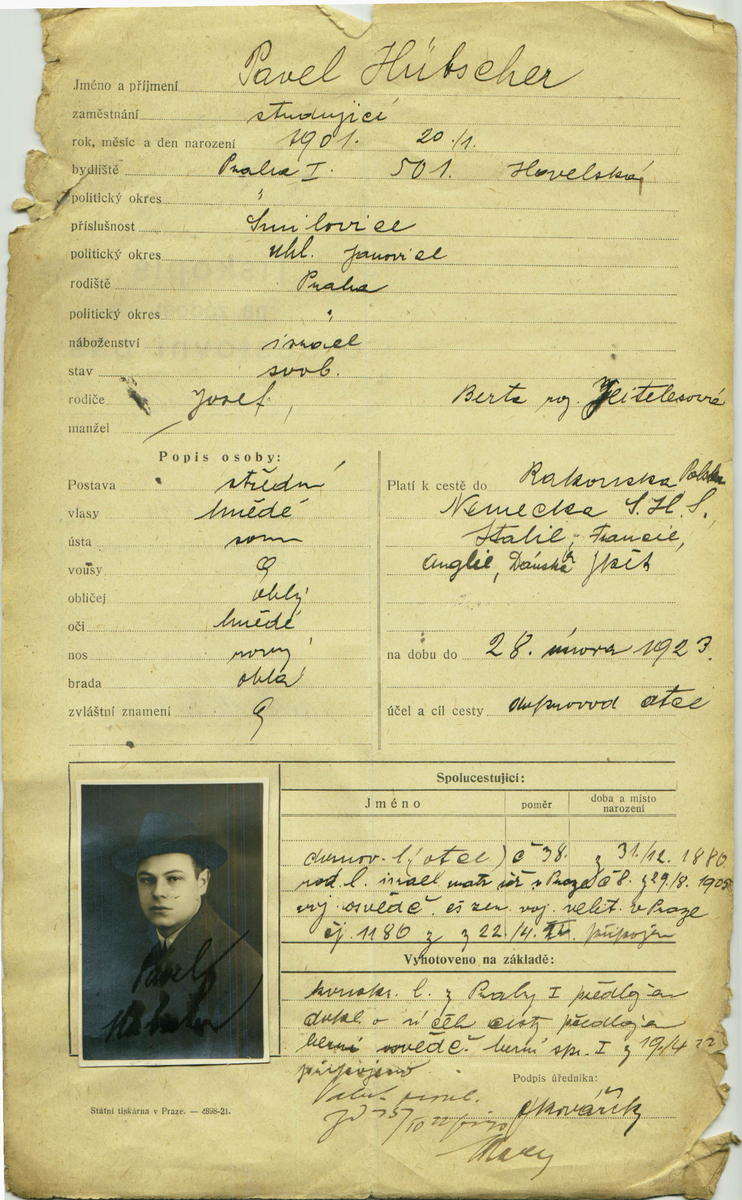 Jméno a příjmení Pavel Hübscher
zaměstnání studující
rok, měsíc a den narození 1901. 20./1.
bydliště Praha I. 501. Havelská
politický okres "
příslušnost Smilovice
politický okres Uhl. Janovice
rodiště Praha
politický okres "
náboženství israel
stav svob.
rodiče Josef, Berta roz. Jeitelesová
manžel
Popis osoby:
Postava střední
vlasy hnědé
ústa
vousy
obličej oblý
oči hnědé
nos rovný
brada oblá
zvláštní znamení
Platí k cestě do Rakouska Polska
Německa S.H.S.,
Italie, Francie,
Anglie, Dánska zpět
na dobu do 28. února 1923.
účel a cíl cesty doprovod otce
Spolucestující:
Jméno poměr doba a místo narození
domov. l. (otce) č 38. z 31./12. 1880
rod. l. israel. matr. v Praze č 8. z 29./8. 1905
voj. osvědč. voj. velit. v Praze
čj. 1180 z 22./4. připojen
Vyhotoveno na základě:
konskr. l. z Prahy I předložen
dokl. o účelu cesty předložen
berní osvědč. berní spr. I z 19/4 22
připojeno
Podpis úředníka:
Kovářík
Pavel
Hübscher
Státní tiskárna v Praze. — 4898-21.